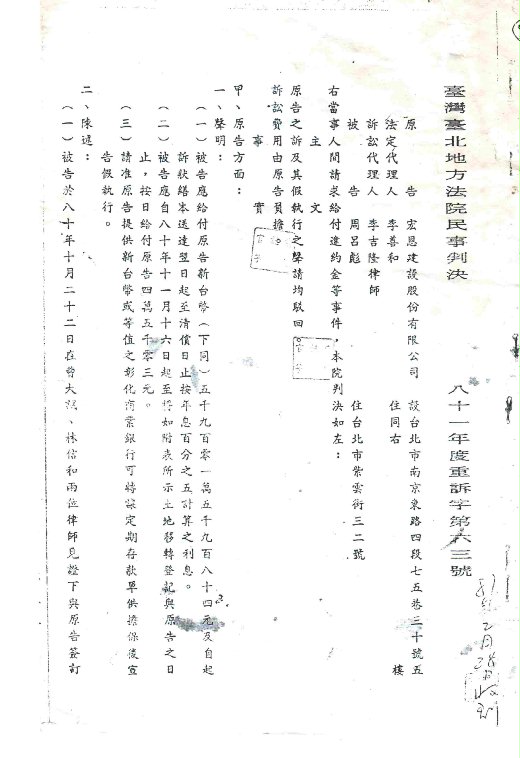 臺灣臺北地方法院民事判決　八十一年度重訴字第六三號
原告　宏恩建設股份有限公司　設台北市南京東路四段七五巷三十號五樓
法定代理人　李善和　住同右
訴訟代理人　李吉隆律師
被告　周呂彪　住台北市紫雲街三二號
右當事人間請求給付違約金等事件，本院判決如左：
主文
原告之訴及其假執行之聲請均駁回。
訴訟費用由原告負擔。
事實
甲、原告方面：
一、聲明：
（一）被告應給付原告新台幣（下同）五千九百零一萬五千九百八十四元及自起
訴狀繕本送達翌日起至清償日止按年息百分之五計算之利息。
（二）被告應自八十年十一月十六日起至將如附表所示土地移轉登記與原告之日
止，按日給付原告四萬五千零三元。
（三）請准原告提供新台幣或等值之彰化商業銀行可轉讓定期存款單供擔保後宣
告假執行。
二、陳述：
（一）被告於八十年十月二十二日在曾大　、林信和兩位律師見證下與原告簽訂